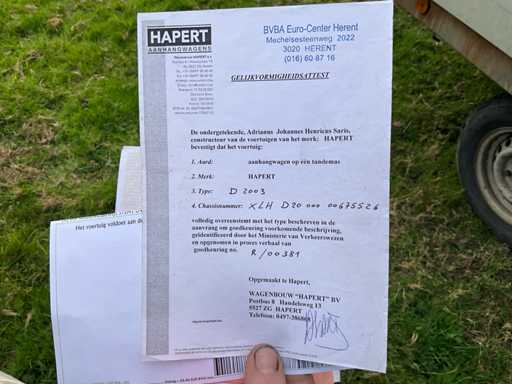 HAPERT
AANHANGWAGENS
BVBA Euro-Center Herent
Mechelsesteenweg 2022
3020 HERENT
(016) 60 87 16
GELIJKVORMIGHEIDSATTEST
De ondergetekende, Adrianus Johannes Henricus Saris,
constructeur van de voertuigen van het merk: HAPERT
bevestigt dat het voertuig:
1. Aard: aanhangwagen op één tandemas
2. Merk: HAPERT
3. Type: D 2003
4. Chassisnummer: XLH D20 000 00675526
volledig overeenstemt met het type beschreven in de
aanvraag om goedkeuring voorkomende beschrijving,
geïdentificeerd door het Ministerie van Verkeerswezen
en opgenomen in proces verbaal van
goedkeuring no. R/00381
Opgemaakt te Hapert,
WAGENBOUW "HAPERT" BV
Postbus 8 Handelsweg 13
5527 ZG HAPERT
Telefoon: 0497-
Het voertuig voldoet aan